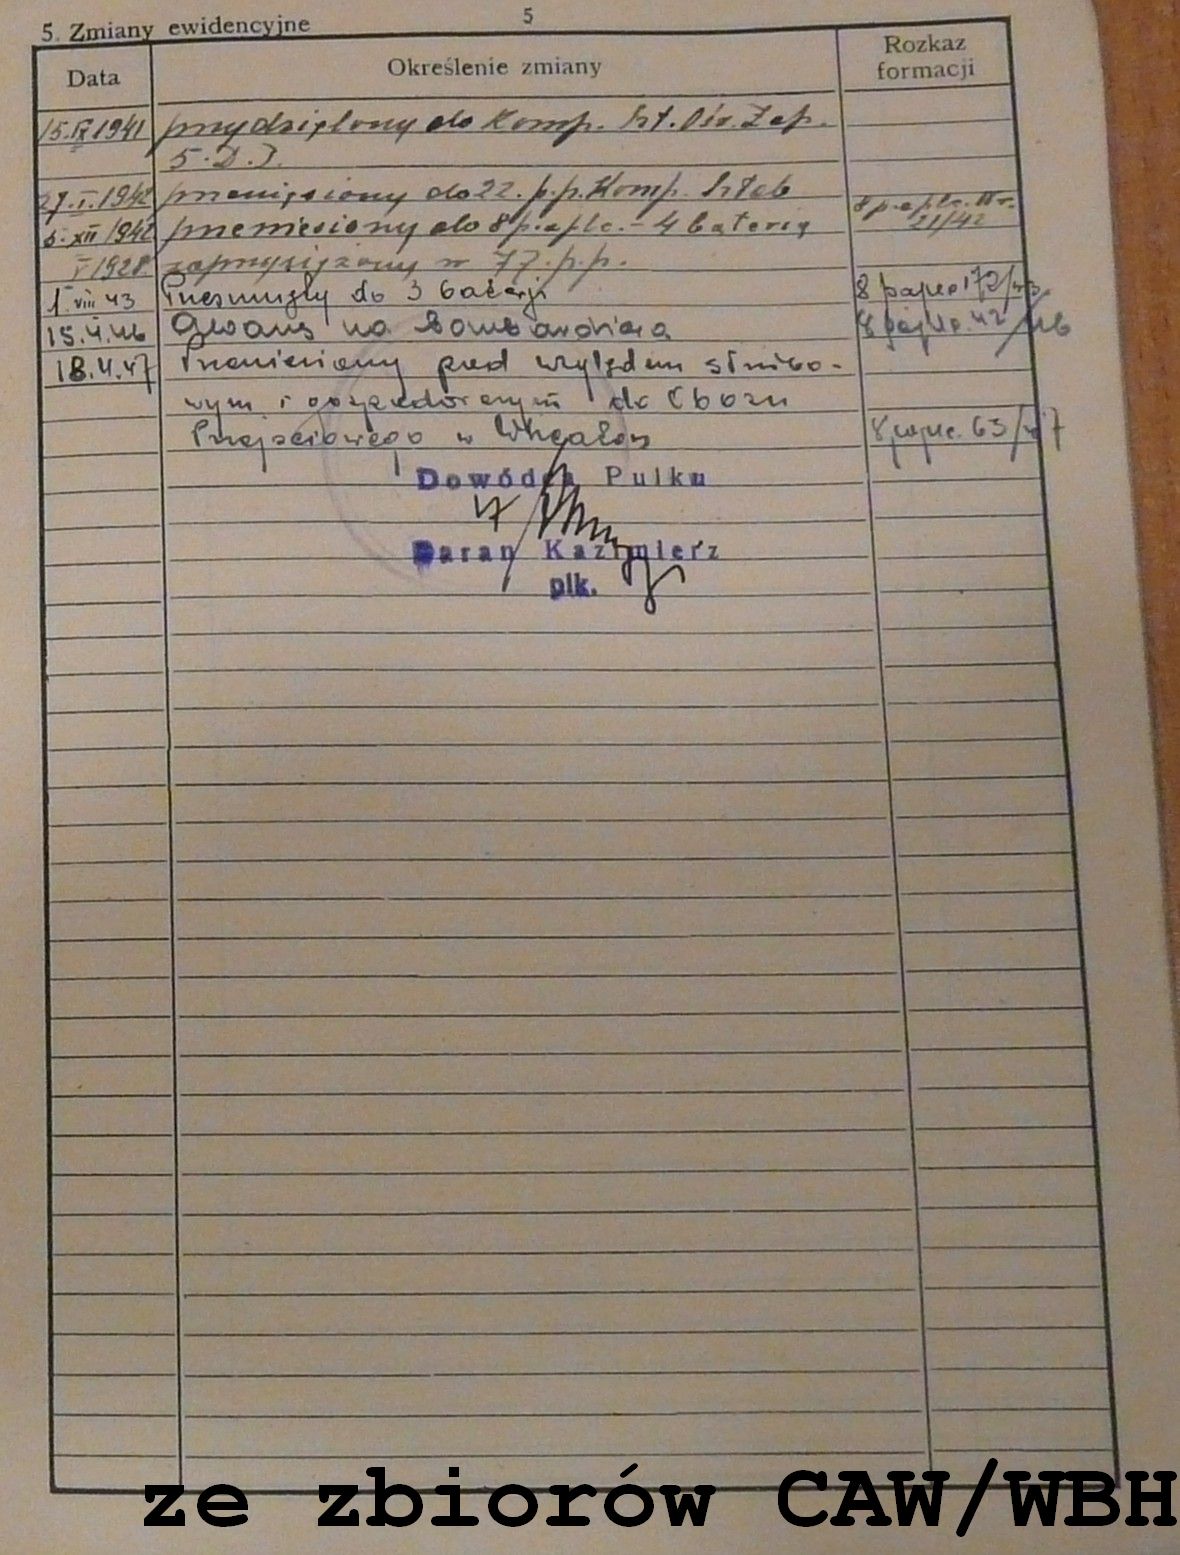 5
5. Zmiany ewidencyjne
Data Określenie zmiany Rozkaz formacji
15.IX.1941 przydzielony do Komp. Szt. Ośr. Zap.
5. D. J.
27.I.1942 przeniesiony do 22. p.p. Komp. Sztab
5.XII 1942 przeniesiony do 8 p.a.plc. - 4 baterią 8 p.a.plc. Nr. 21/42
V 1928 zaprzysiężony w 77. p.p.
1.VIII 43 Przesunięty do 3 baterji 172/43
15.4.46 na bombardiera 42/46
18.4.47 Przeniesiony pod względem służbo-
wym i gospodarczym do Obozu
Przejściowego w 63/47
Dowódca Pułku
Baran Kazimierz
płk.
ze zbiorów CAW/WBH